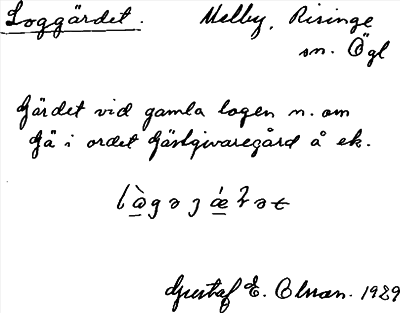 Loggärdet.
Melby, Risinge
sn. Ögl
Gärdet vid gamla logen n. om
Gä i ordet Gästgivaregård å ek.
Gustaf E. Olsson. 1929